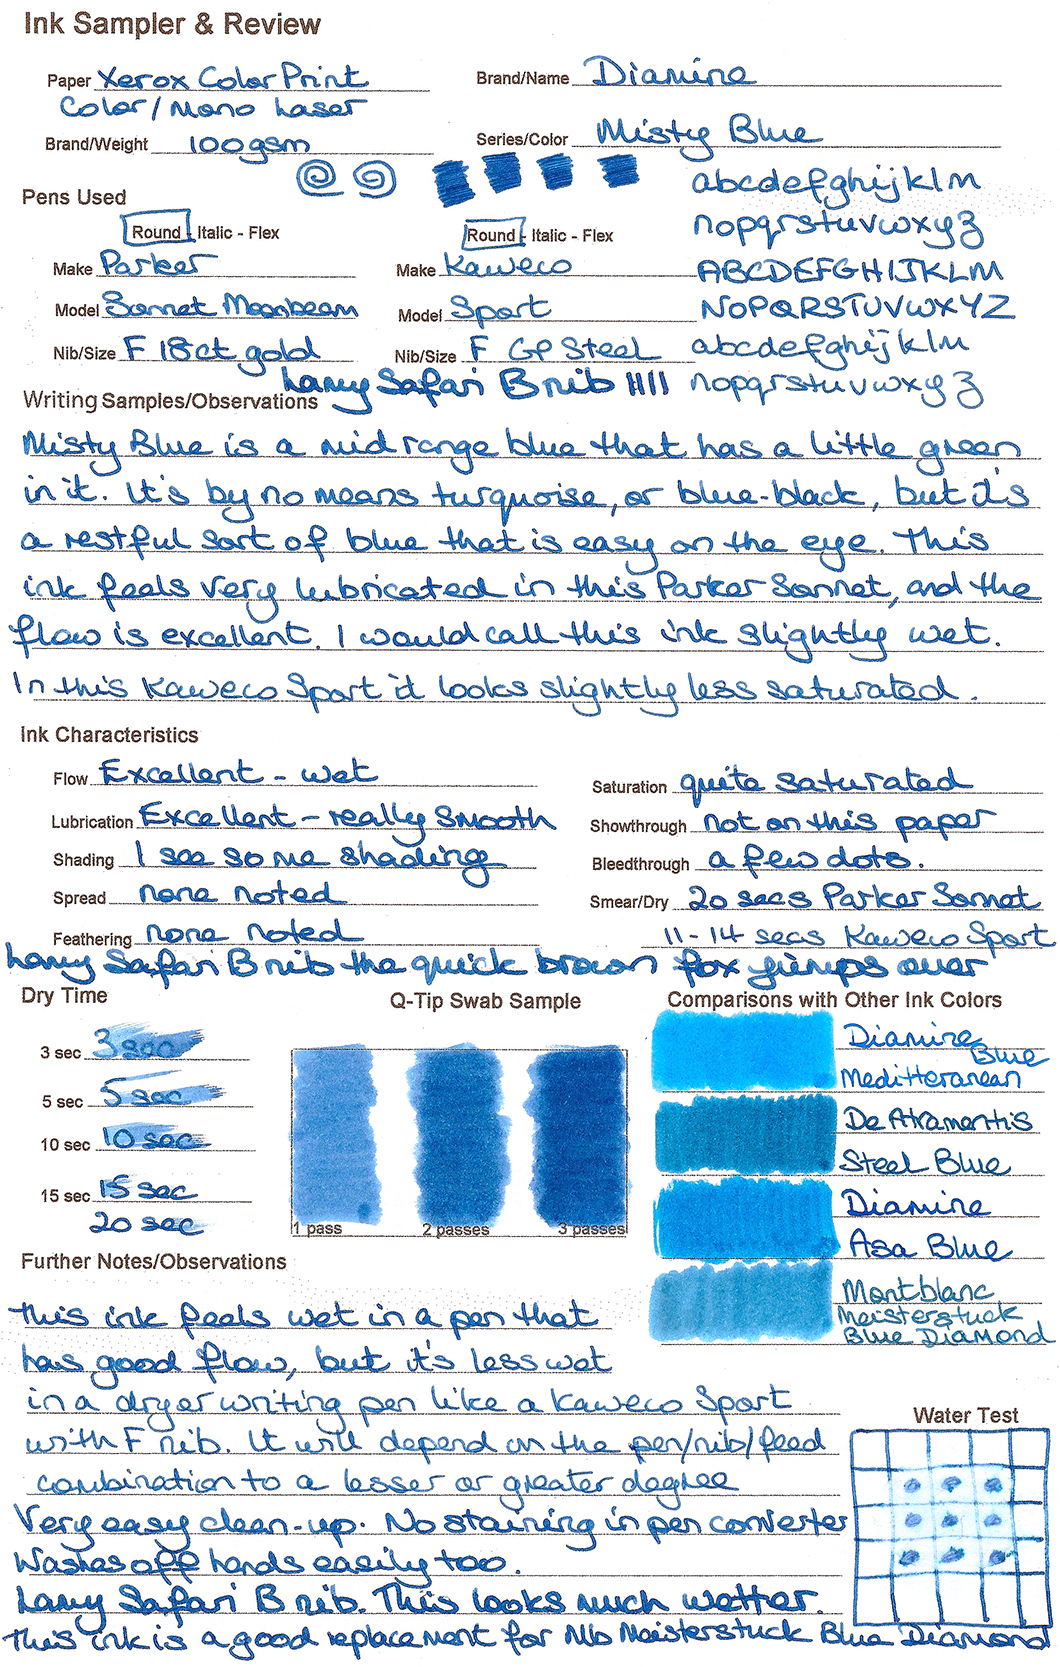 Ink Sampler & Review
Paper Xerox Color Print
Color/Mono Laser
Brand/Name Diamine
Brand/Weight 100gsm
Series/Color Misty Blue
abcdefghijklm
nopqrstuvwxyz
ABCDEFGHIJKLM
NOPQRSTUVWXYZ
abcdefghijklm
nopqrstuvwxyz
Pens Used
Round - Italic - Flex
Make Parker
Model Sonnet Moonbeam
Nib/Size F 18ct gold
Round - Italic - Flex
Make Kaweco
Model Sport
Nib/Size F GP Steel
Lamy Safari B nib
Writing Samples/Observations
Misty Blue is a mid range blue that has a little green
in it. It's by no means turquoise, or blue-black, but it's
a restful sort of blue that is easy on the eye. This
ink feels very lubricated in this Parker Sonnet, and the
flow is excellent. I would call this ink slightly wet.
In this Kaweco Sport it looks slightly less saturated.
Ink Characteristics
Flow Excellent - wet
Lubrication Excellent - really smooth
Shading I see some shading
Spread none noted
Feathering none noted
Saturation quite saturated
Showthrough not on this paper
Bleedthrough a few dots.
Smear/Dry 20 secs Parker Sonnet
11-14 secs Kaweco Sport
Lamy Safari B nib the quick brown fox jumps over
Dry Time
3 sec 3 sec
5 sec 5 sec
10 sec 10 sec
15 sec 15 sec
20 sec
Q-Tip Swab Sample
1 pass
2 passes
3 passes
Comparisons with Other Ink Colors
Diamine
Blue
Meditteranean
De Atramentis
Steel Blue
Diamine
Asa Blue
Montblanc
Meisterstuck
Blue Diamond
Further Notes/Observations
This ink feels wet in a pen that
has good flow, but it's less wet
in a dryer writing pen like a Kaweco Sport
with F nib. It will depend on the pen/nib/feed
combination to a lesser or greater degree
Very easy clean-up. No staining in pen converter
Washes off hands easily too.
Lamy Safari B nib. This looks much wetter.
This ink is a good replacement for Mb Meisterstuck Blue Diamond
Water Test